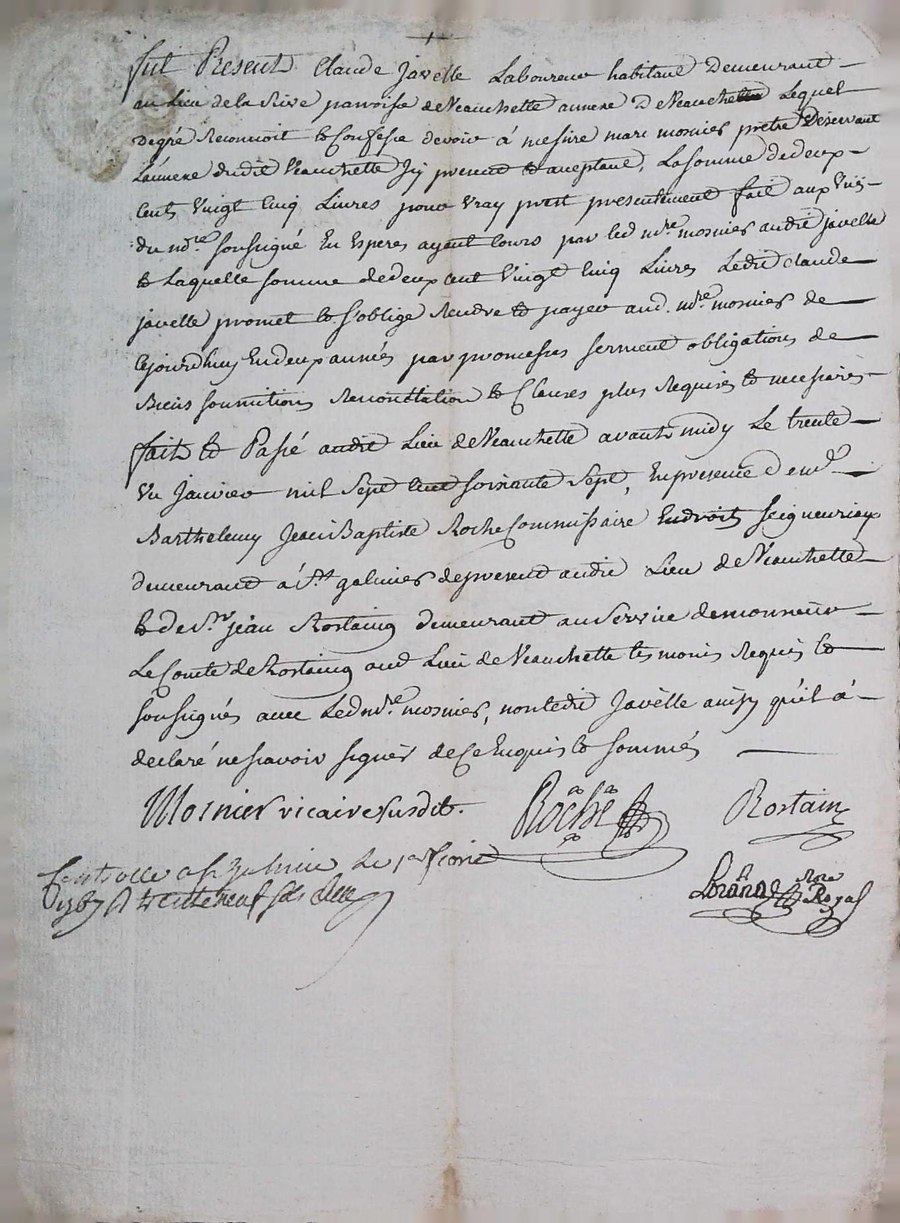 fut Present Claude Javelle Laboureur habitant Demeurant
au Lieu de la Rive parroise de Veauchette annexe De Veauche Lequel
Degré Reconnoit & Confesse devoir à messire marc mosnier prêtre Déservant
L'annexe dudit Veauchette Jcy present & acceptant, La somme de deux
Cents Vingt Cinq Livres pour Vray prest presentement fait aux Vüe
du nore. soussigné En Esperes ayant Cours par led mre. mosnier audit javelle
& Laquelle somme de deux cent Vingt Cinq Livres Ledit Claude
javelle promet & s'oblige Rendre & payer aud. mre. mosnier de
Cejourdhuy En deux années par promesses serment obligations de
Biens soumitions Renontiation & Clauses plus Requises & necessaires
fait & Passé audit Lieu de Veauchette avant midy Le trente
Un Janvier mil Sept Cent soixante Sept, En presence d
Barthelemy Jean Baptiste Roche Commissaire En droits Seigneuriaux
demeurant à St. galmier de present audit Lieu de Veauchette
& de Sr. jean Rostaing demeurant au Service de monsieur
Le Comte de Rostaing aud Lieu de Veauchette tesmoins Requis &
soussignés avec Led mre. mosnier, non ledit Javelle ainsy qu'il à
declaré ne scavoir signer de Ce Enquis & sommés
Mosnier vicaire susdit.
Roche
Rostain
Controllé a St galmier Le 1er fevrier
1767 R trente neuf sols
nore
Royal